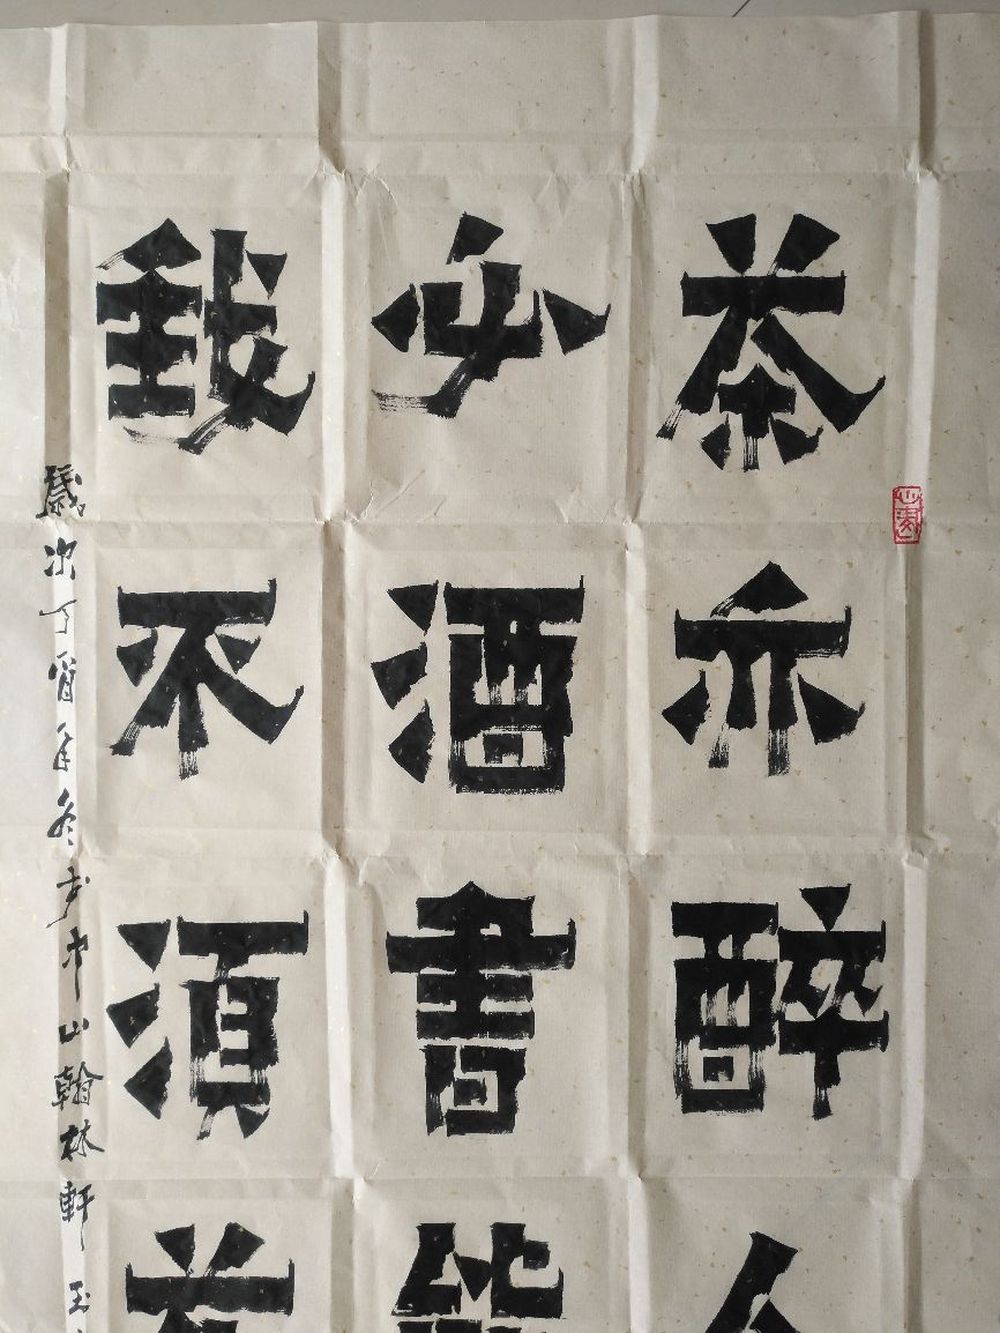 茶亦醉人
必酒書能
我不須花
歲次丁酉年冬於中山翰林軒玉